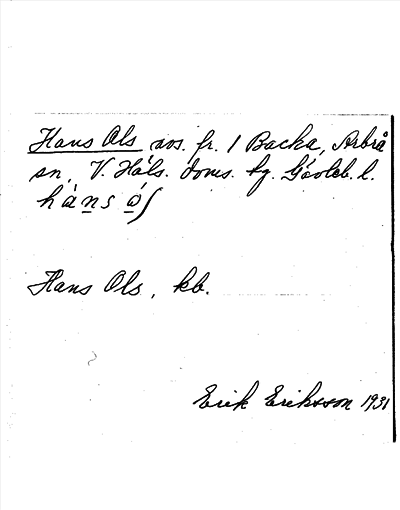 Hans Ols nos. fr. 1 Backa, Arbrå
sn, V. Häls. doms. hg. Gävleb. l.
hán̲s ó̲ʃ
Hans Ols, kb.
Erik Eriksson 1931